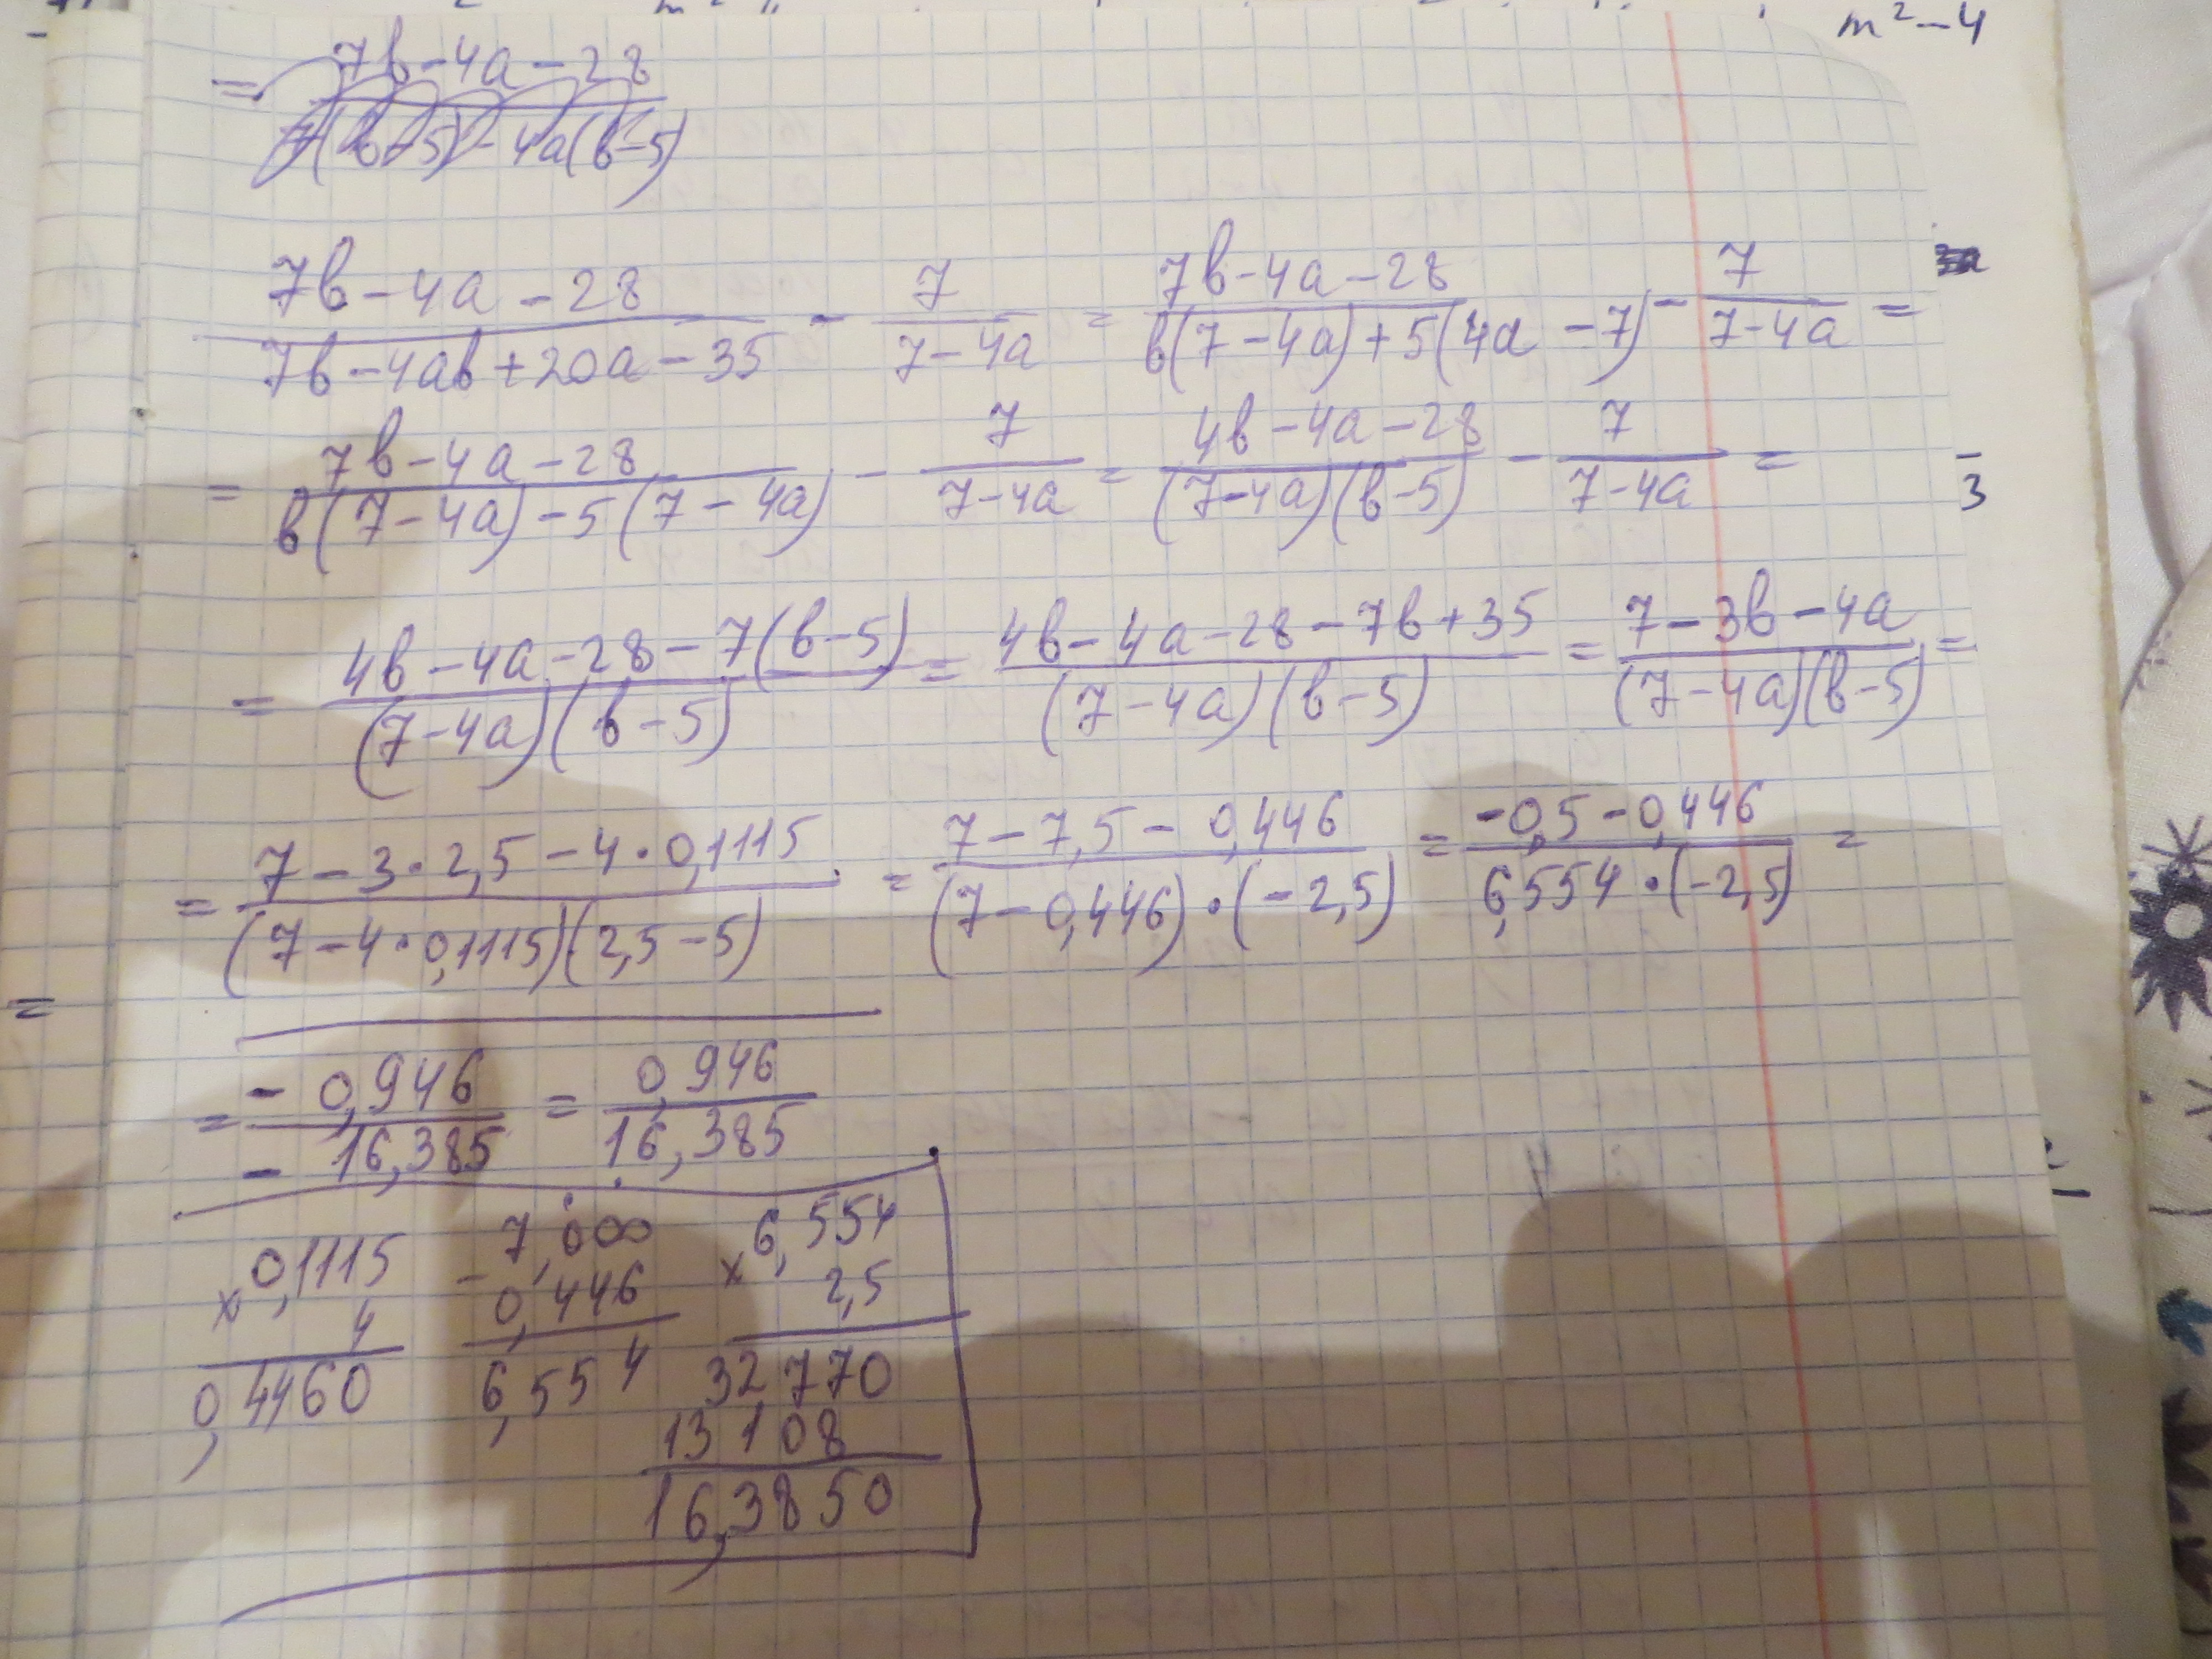 m² - 4
= (7b - 4a - 28)/(7(b-5) - 4a(b-5))
(7b - 4a - 28)/(7b - 4ab + 20a - 35) - 7/(7 - 4a) = (7b - 4a - 28)/(b(7 - 4a) + 5(4a - 7)) - 7/(7 - 4a) =
= (7b - 4a - 28)/(b(7 - 4a) - 5(7 - 4a)) - 7/(7 - 4a) = (4b - 4a - 28)/((7 - 4a)(b - 5)) - 7/(7 - 4a) =
3
= (4b - 4a - 28 - 7(b - 5))/((7 - 4a)(b - 5)) = (4b - 4a - 28 - 7b + 35)/((7 - 4a)(b - 5)) = (7 - 3b - 4a)/((7 - 4a)(b - 5)) =
= (7 - 3·2,5 - 4·0,1115)/((7 - 4·0,1115)(2,5 - 5)) = (7 - 7,5 - 0,446)/((7 - 0,446)·(-2,5)) = (-0,5 - 0,446)/(6,554·(-2,5)) =
=
= (-0,946)/(-16,385) = 0,946/16,385
0,1115 7,000 6,554
x 4 - 0,446 x 2,5
0,4460 6,554 32770
13108
16,3850